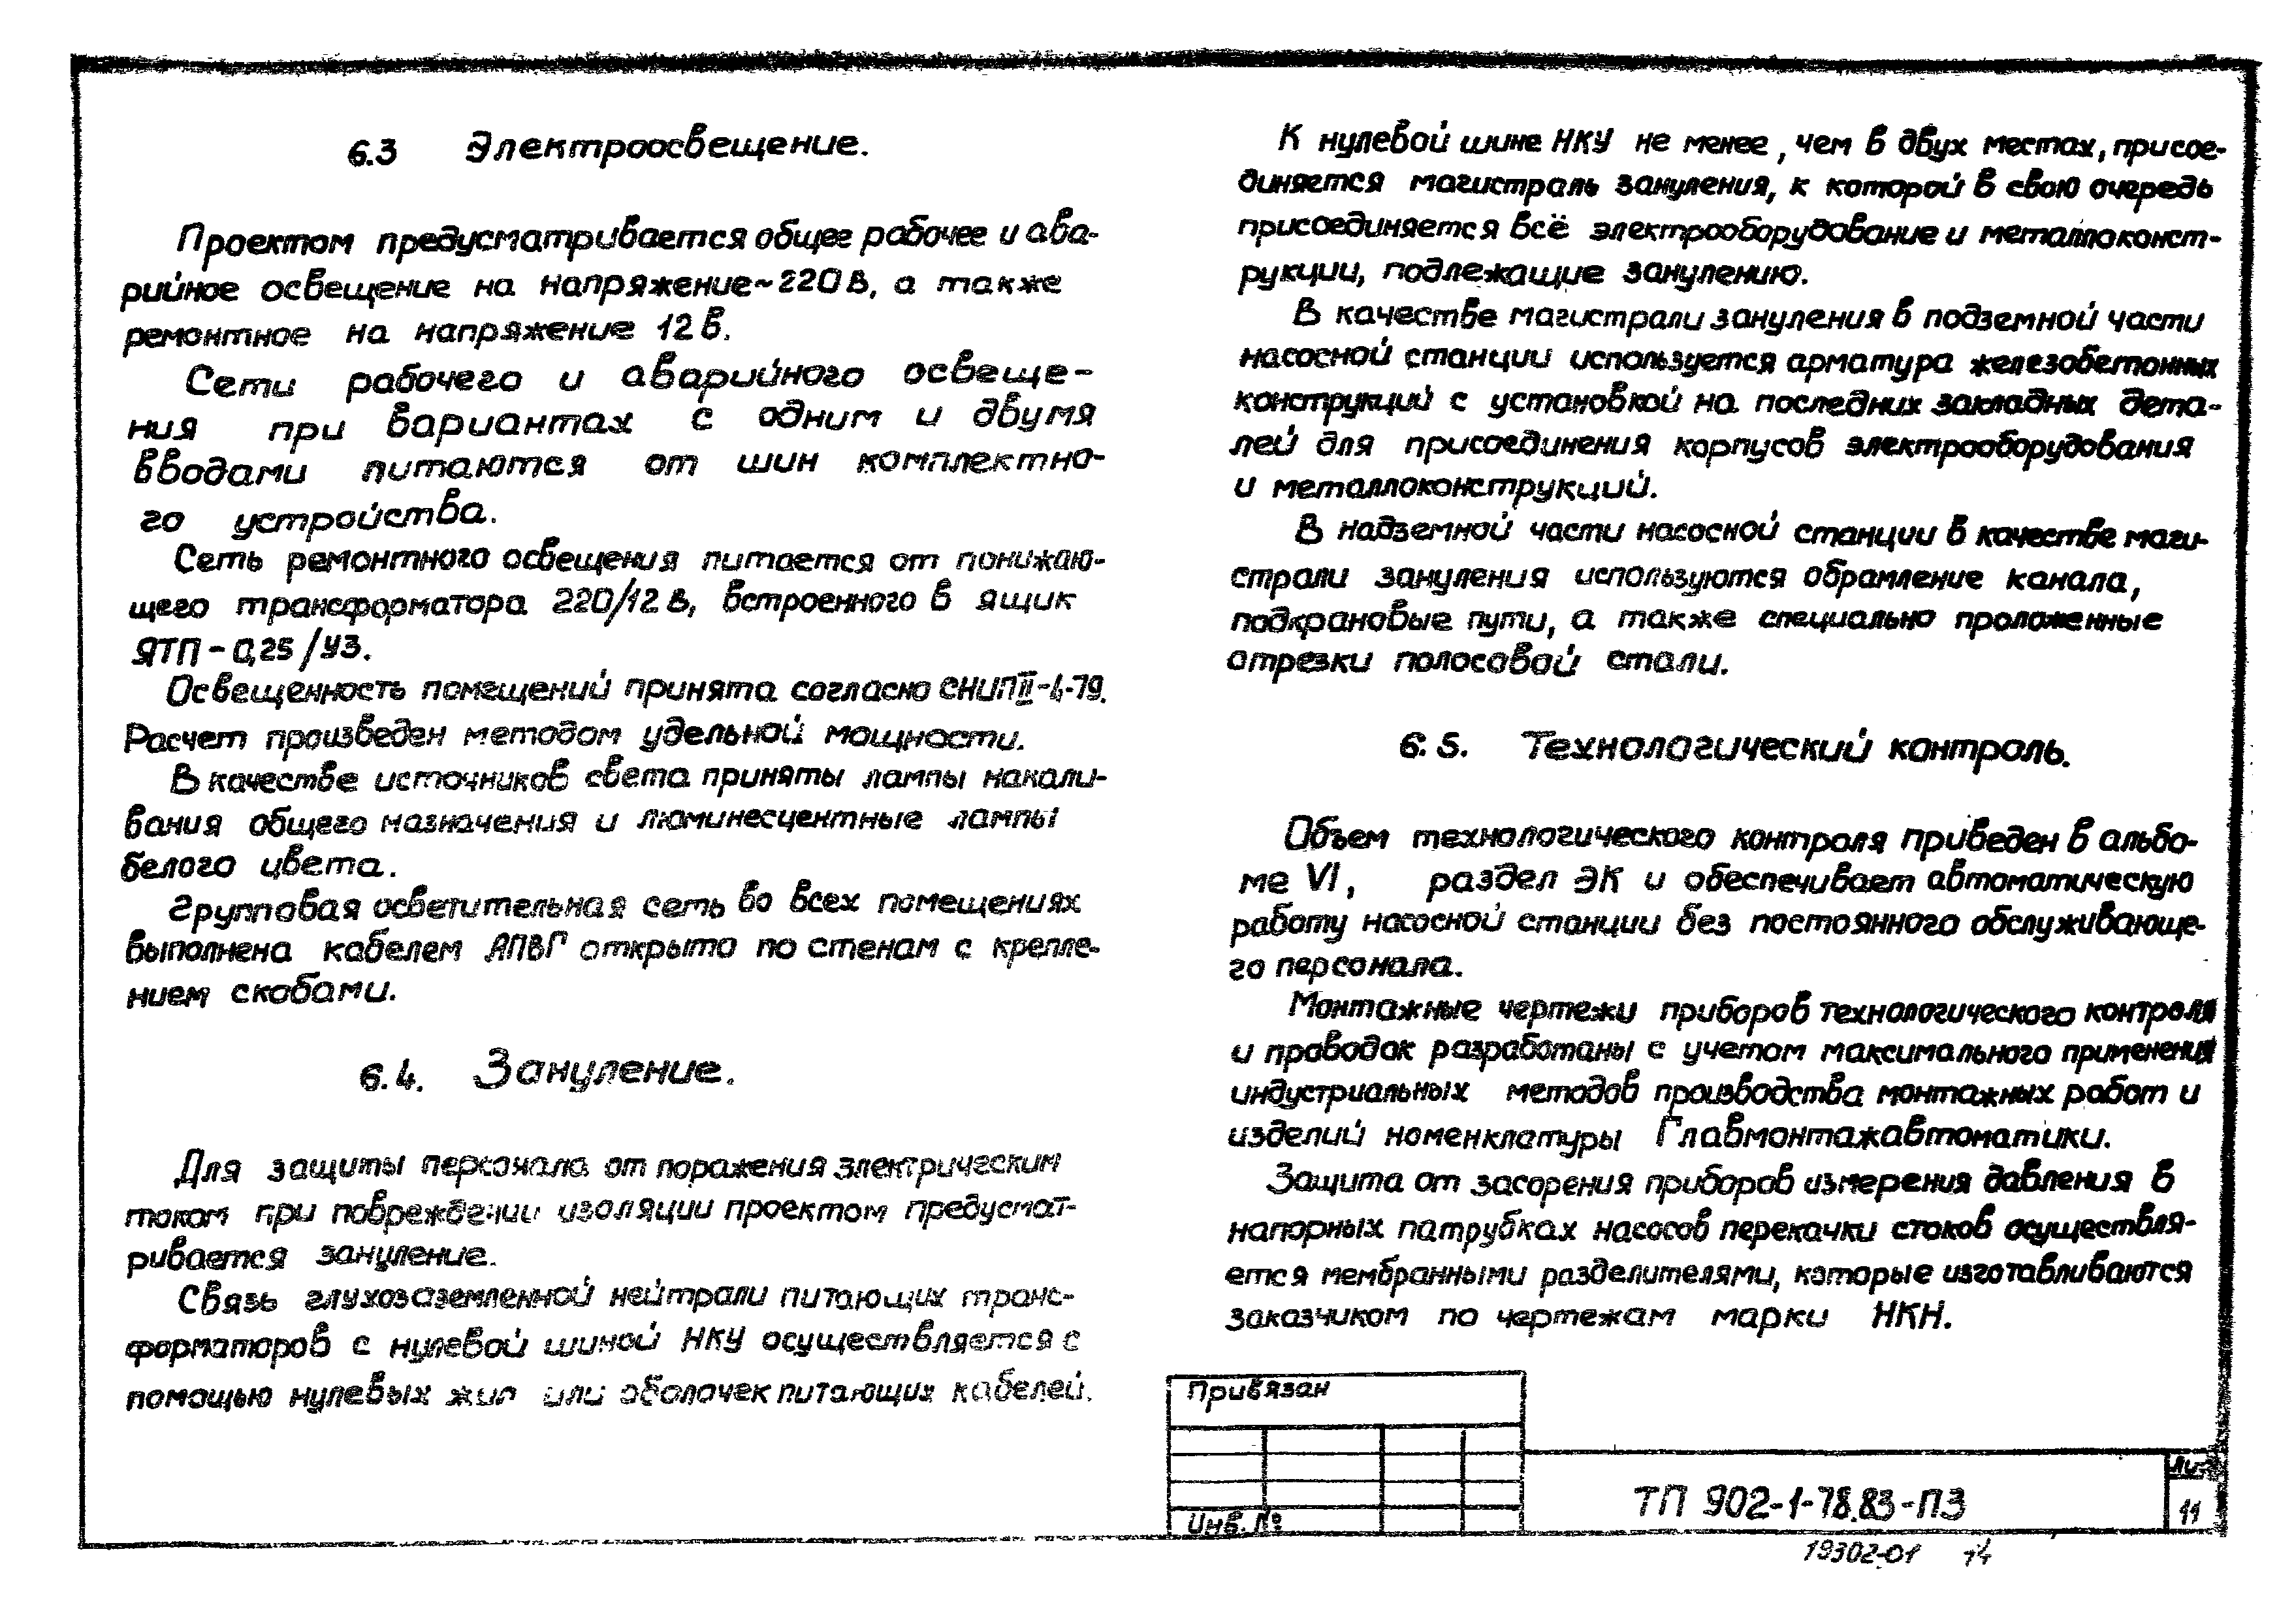 6.3 Электроосвещение.
Проектом предусматривается общее рабочее и ава-
рийное освещение на напряжение ~220 в, а также
ремонтное на напряжение 12 в.
Сети рабочего и аварийного освеще-
ния при вариантах с одним и двумя
вводами питаются от шин комплектно-
го устройства.
Сеть ремонтного освещения питается от понижаю-
щего трансформатора 220/12 в, встроенного в ящик
ЯТП-0,25/У3.
Освещенность помещений принята согласно СНИП II-4-79.
Расчет произведен методом удельной мощности.
В качестве источников света приняты лампы накали-
вания общего назначения и люминесцентные лампы
белого цвета.
Групповая осветительная сеть во всех помещениях
выполнена кабелем АПВГ открыто по стенам с крепле-
нием скобами.
6.4. Зануление.
Для защиты персонала от поражения электрическим
током при повреждении изоляции проектом предусмат-
ривается зануление.
Связь глухозаземленной нейтрали питающих транс-
форматоров с нулевой шиной НКУ осуществляется с
помощью нулевых жил или оболочек питающих кабелей.
К нулевой шине НКУ не менее, чем в двух местах, присое-
диняется магистраль зануления, к которой в свою очередь
присоединяется всё электрооборудование и металлоконст-
рукции, подлежащие занулению.
В качестве магистрали зануления в подземной части
насосной станции используется арматура железобетонных
конструкций с установкой на последних закладных дета-
лей для присоединения корпусов электрооборудования
и металлоконструкций.
В надземной части насосной станции в качестве маги-
страли зануления используются обрамление канала,
подкрановые пути, а также специально проложенные
отрезки полосовой стали.
6.5. Технологический контроль.
Объем технологического контроля приведен в альбо-
ме VI, раздел ЭК и обеспечивает автоматическую
работу насосной станции без постоянного обслуживающе-
го персонала.
Монтажные чертежи приборов технологического контроля
и проводок разработаны с учетом максимального применения
индустриальных методов производства монтажных работ и
изделий номенклатуры Главмонтажавтоматики.
Защита от засорения приборов измерения давления в
напорных патрубках насосов перекачки стоков осуществля-
ется мембранными разделителями, которые изготавливаются
заказчиком по чертежам марки НКН.
Привязан
Инв. №
ТП 902-1-78.83-ПЗ
11
19302-01 14